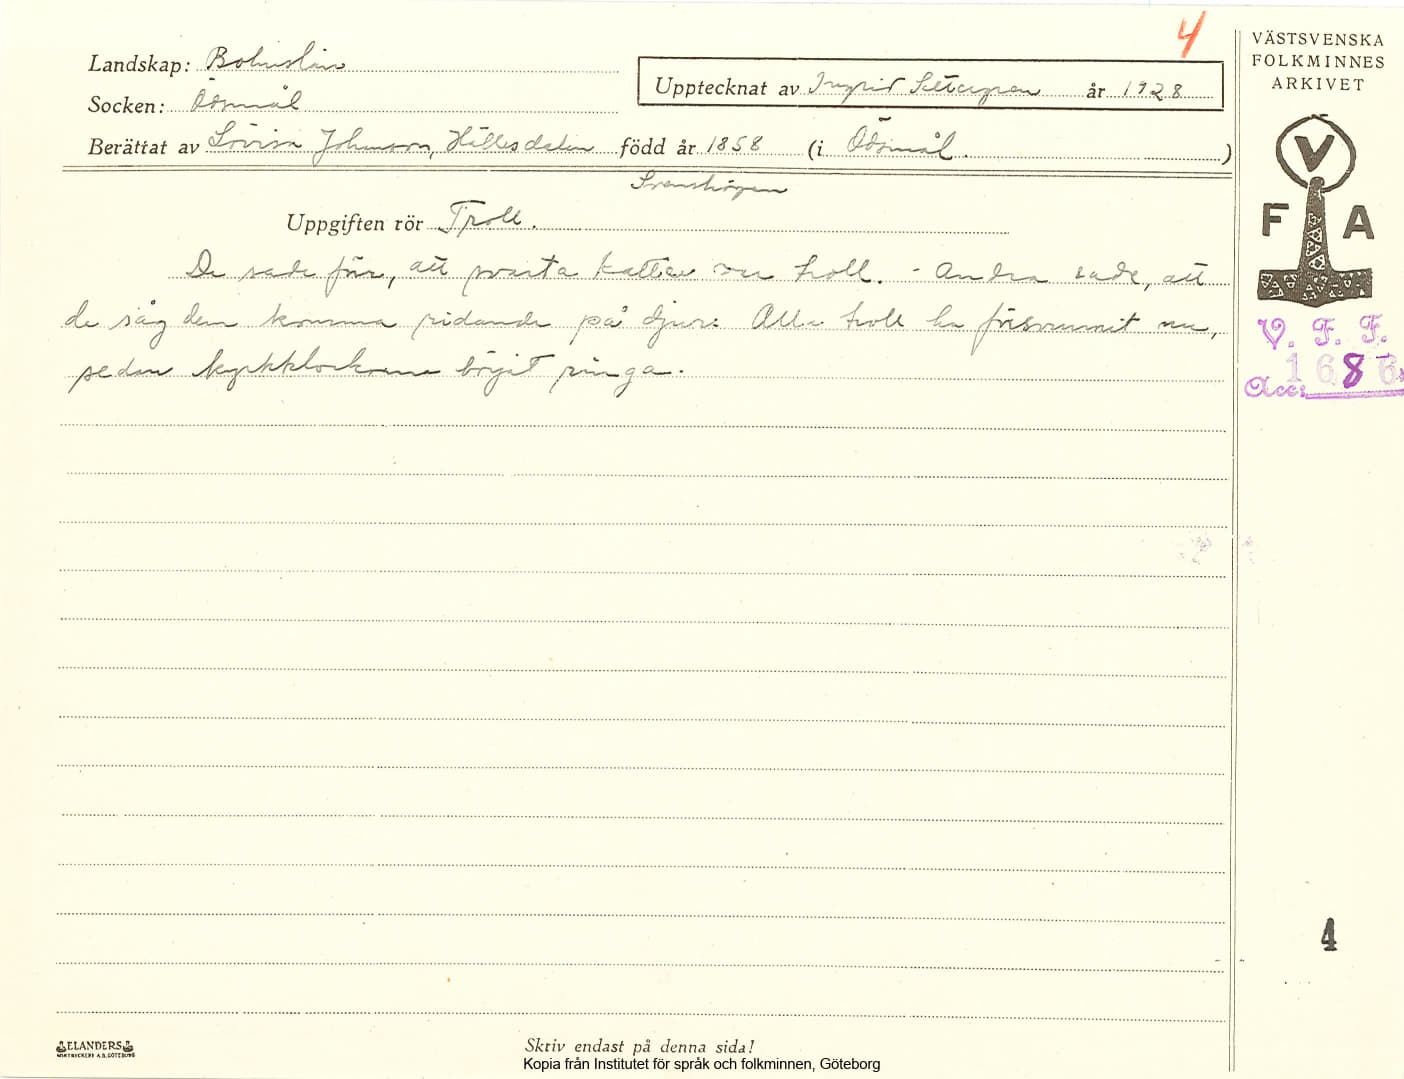 4
VÄSTSVENSKA
FOLKMINNES
ARKIVET
Landskap: Bohuslän
Upptecknat av Ingrid år 1928
Socken: Ödsmål
Berättat av Lovisa Johansson, Hällesdalen född år 1858 (i Ödsmål.)
Svenshögen
Uppgiften rör Troll.
De sade för, att svarta katter var troll. - Andra sade, att
de såg dem komma ridande på djur. Alla troll ha försvunnit nu,
sedan kyrkklockorna börjat ringa.
V
F A
V. F. F.
Acc: 1686
4
ELANDERS
Skriv endast på denna sida!
Kopia från Institutet för språk och folkminnen, Göteborg